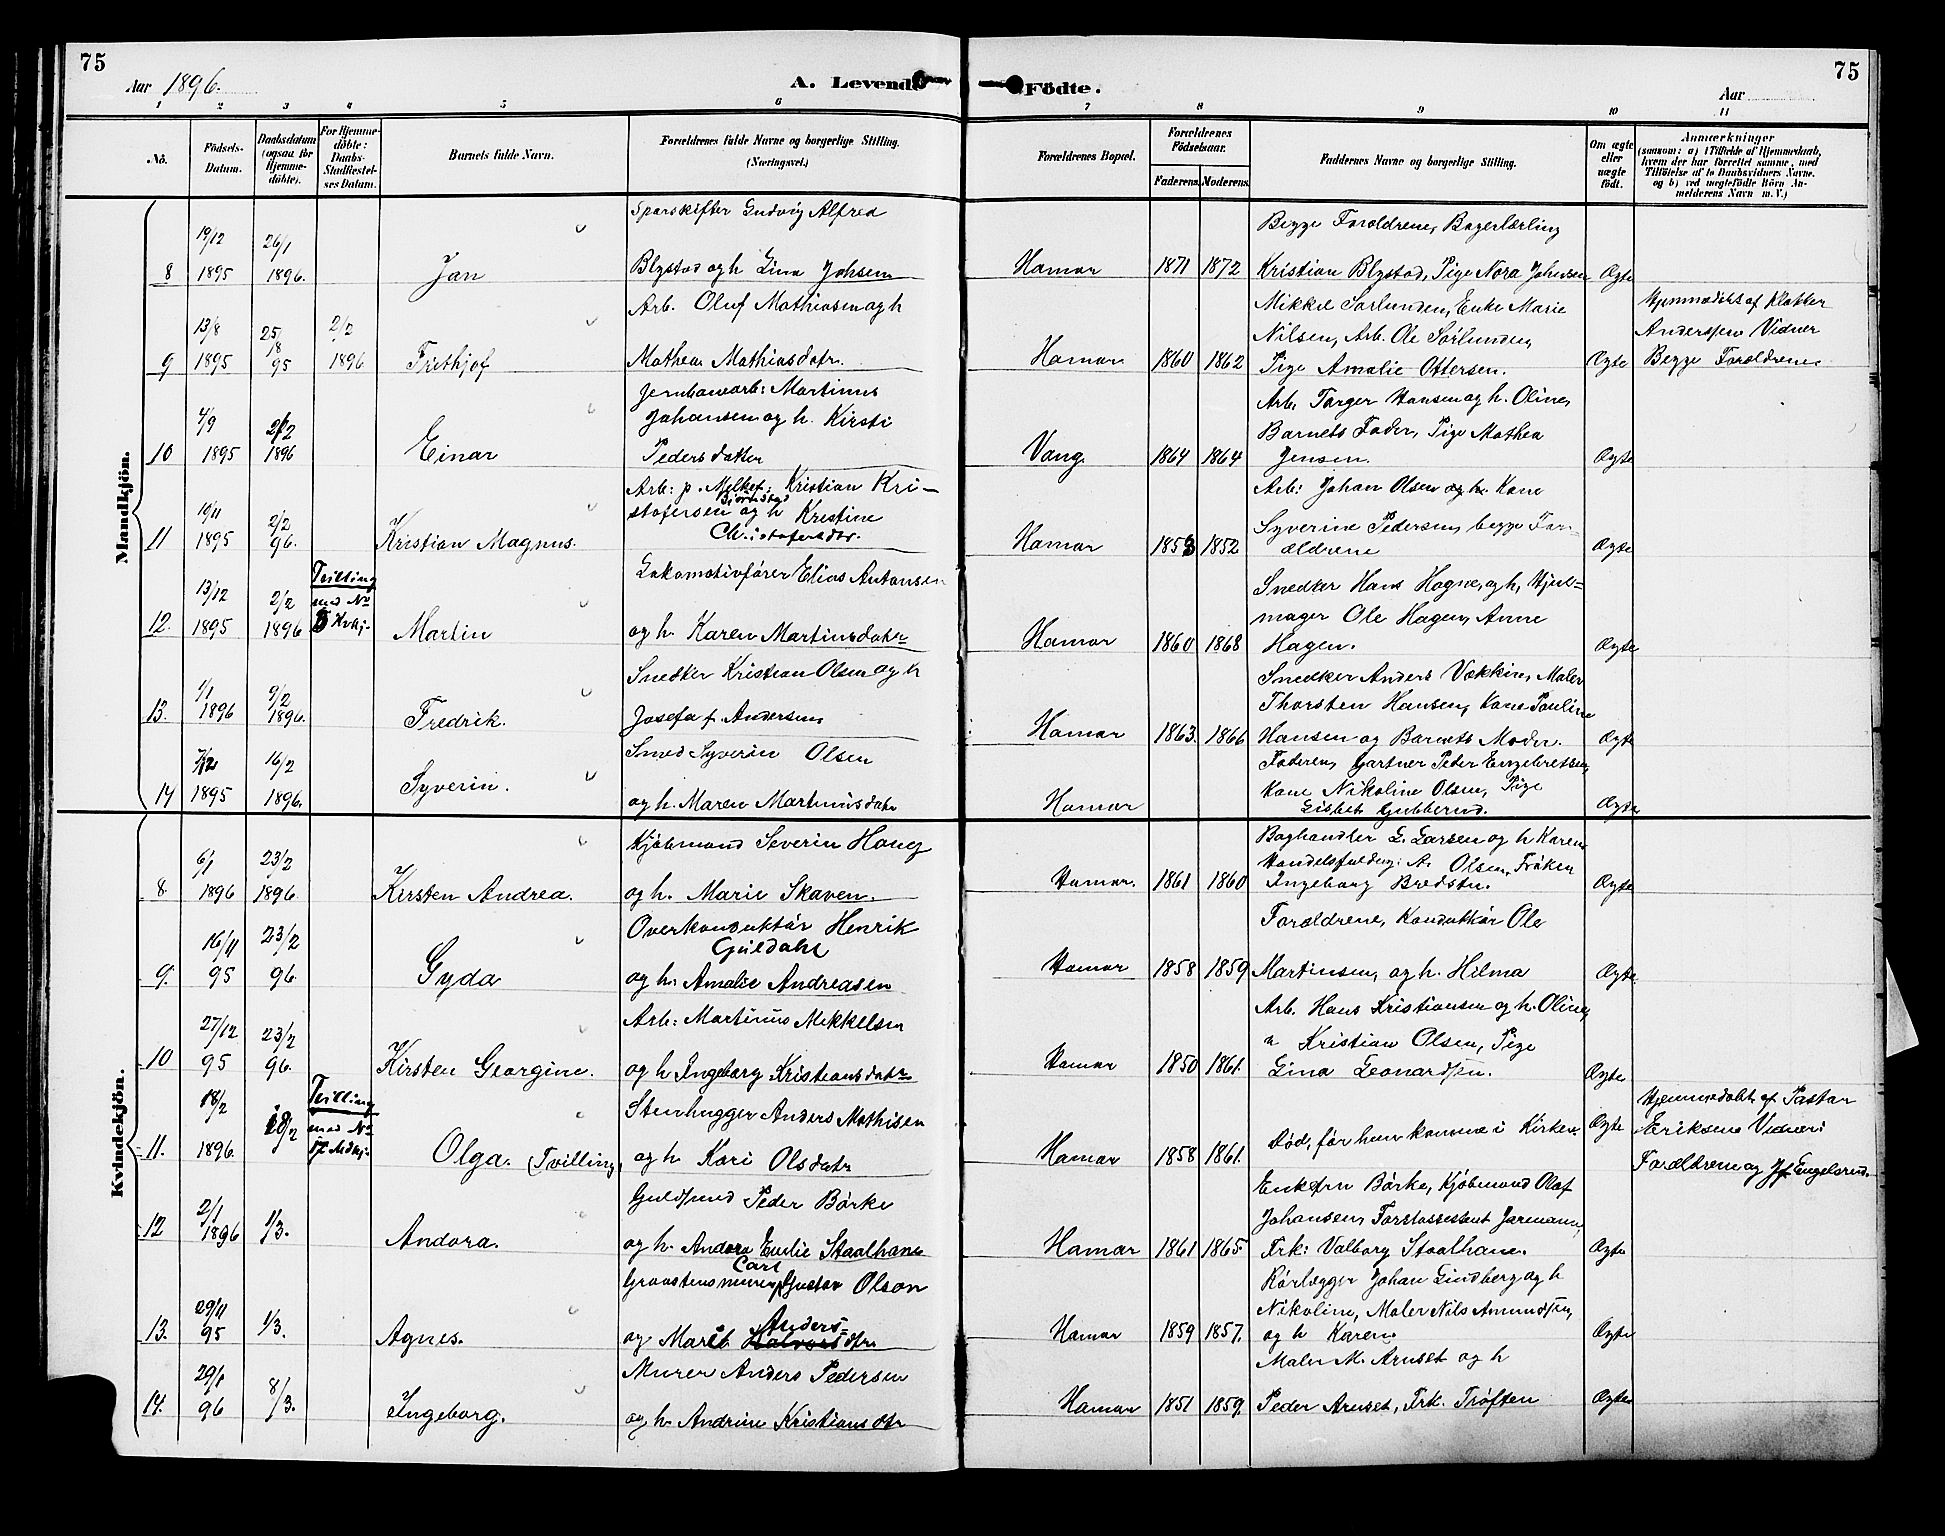 75
75
Aar 1896.
A. Levende
Födte.
Aar
1 2 3 4 5 6 7 8 9 10 11
No.
Födsels-Datum.
Daabsdatum (ogsaa for Hjemmedöbte).
For Hjemmedöbte: Daabs-Stadfæstelses Datum.
Barnets fulde Navn.
Forældrenes fulde Navne og borgerlige Stilling. (Næringsvei.)
Forældrenes Bopæl.
Forældrenes Födselsaar.
Faderens. Moderens.
Faddernes Navne og borgerlige Stilling.
Om ægte eller uægte født.
Anmærkninger
(saasom: a) i Tilfælde af Hjemmedaab, hvem der har forrettet samme, med Tilföielse af to Daabsvidners Navne, og b) ved uægtefödte Börn Anmelderens Navn m. V.)
Mandkjön.
8 19/12 1895 26/1 1896. Jan
Sporskifter Ludvig Alfred
Blystad og h Lina Johsen
Hamar 1871 1872
Begge Forældrene, Bagerlærling
Kristian Blystad, Pige Nora Johnsen Ægte
9 13/8 1895 25/8 95 2/2 1896 Frithjof
Arb. Oluf Mathiasen og h
Mathea Mathiasdatr.
Hamar 1860 1862
Mikkel Sørlunden, Enke Marie
Nilsen, Arb. Ole Sørlunden,
Pige Amalie Ottersen. Ægte
Hjemmedøbt af Klokker
Anderssen Vidner
Begge Forældrene
10 4/9 1895 2/2 1896 Einar
Jernbanearb: Martinus
Johansen og h. Kirsti
Pedersdatter
Vang. 1864 1864
Arb. Torger Hansen og h. Oline,
Barnets Fader, Pige Mathea
Jensen. Ægte
11 19/11 1895 2/2 96. Kristian Magnus.
Arb: p. Melkef. Kristian Kri-
Bjørnstad
stofersen og h Kristine
Christofersdtr.
Hamar 1853 1852
Arb: Johan Olsen og h. Kone
Syverine Pedersen, begge For-
ældrene Ægte
12. 13/12 1895 2/2 1896 Tvilling med No 5 Kvkj. Martin
Lokomotivfører Elias Antonsen
og h. Karen Martinsdatr
Hamar 1860 1868
Snedker Hans Hagne, og h, Hjul-
mager Ole Hagen, Anne
Hagen. Ægte
13. 1/1 1896 9/2 1896. Fredrik.
Snedker Kristian Olsen og h
Josefa f. Andersen
Hamar 1863. 1866
Snedker Anders Vækkin, Maler
Thorsten Hansen, Kone Pauline
Hansen og Barnets Moder. Ægte
14 7/12 1895 16/2 1896. Syverin.
Smed Syverin Olsen
og h. Maren Martinusdatr
Hamar
Faderen, Gartner Peder Engebretsen,
Kone Nikoline Olsen, Pige
Lisbet Gubberud. Ægte
Kvindekjön.
8. 6/1 1896 23/2 1896. Kirsten Andrea.
Kjøbmand Severin Haug
og h. Marie Skaven.
Hamar. 1861 1860
Boghandler L. Larsen og h Karen
Handelsfuldm: A. Olsen, Frøken
Ingeborg Bredsten. Ægte
9. 16/11 95 23/2 96. Gyda
Overkonduktør Henrik
Guldahl
og h. Amalie Andreasen
Hamar 1858 1859
Forældrene, Konduktør Ole
Martinsen, og h. Hilma Ægte
10 27/12 95 23/2 96. Kirsten Georgine.
Arb: Martinus Mikkelsen
og h Ingeborg Kristiansdatr
Hamar 1850 1861.
Arb. Hans Kristiansen og h. Oline,
" Kristian Olsen, Pige
Lina Leonardsen. Ægte
11. 18/2 1896. 18/2 Tvilling med No 17 Mdkj. Olga. (Tvilling)
Stenhugger Anders Mathisen
og h Kari Olsdatr
Hamar 1858 1861.
Død, før hun komme i Kirken. Ægte
Hjemmedøbt af Pastor
Eriksen Vidner:
Forældrene og Jf. Engelsrud.
12 2/1 1896 1/3. Andora.
Guldsmed Peder Børke
og h. Andora Emelie Staalhane
Hamar 1861 1865.
Enkefru Børke, Kjøbmand Olaf
Johansen, Forstassistent Jarmann,
Frk: Valborg Staalhane. Ægte
13. 29/11 95 1/3. Agnes.
Carl
Graastensmurer Gustav Olson
Anders-
og Marit dtr.
Hamar 1859 1857.
Rørlægger Johan Lindberg og h
Nikoline, Maler Nils Amundsen,
og h Karen. Ægte
14. 29/1 96 8/3. Ingeborg.
Murer Anders Pedersen
og h. Andrine Kristiansdtr
Hamar 1851 1859.
Maler M. Aruset og h
Peder Aruset, Frk. Trøften Ægte